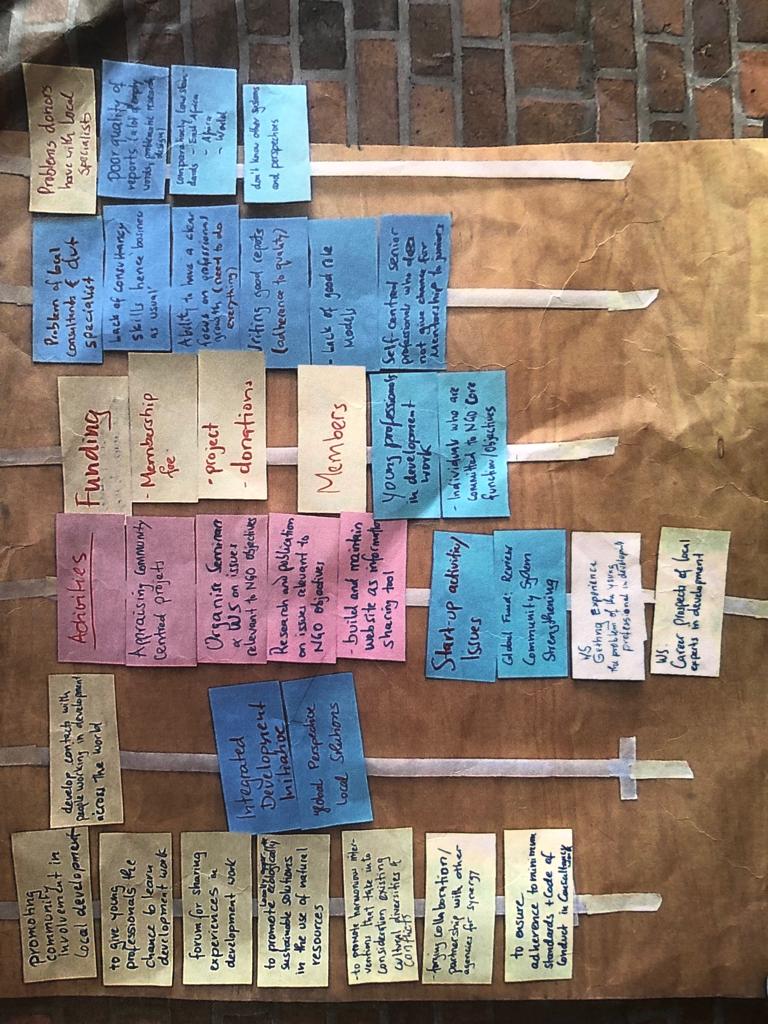 promoting
community
involvement in
Local development
to give young
professionals the
chance to learn
development work
forum for sharing
experiences in
development work
to promote ecologically
sustainable solutions
in the use of natural
resources
- to promote harmonious inter-
ventions that take into
consideration existing
cultural diversities &
conflicts
- forging collaboration/
partnership with other
agencies for synergy
to ensure
adherence to minimum
standards + Code of
Conduct in Consultancy
develop contacts with
people working in development
across the world
Integrated
Development
Initiative
Global Perspective
Local Solutions
Activities
Appraising Community
Centred projets
Organise Seminars
& WS on issues
relevant to NGO objectives
Research and publication
on issues relevant to
NGO objectives
- build and maintain
website as information
sharing tool
Start-up activities/
Issues
Global Fund: Review
Community System
Strengthening
WS
Getting Experience
the problem of the young
professional in development
WS:
Career prospects of local
experts in development
Funding
- Membership
fee
- project
- donations
Members
Young professionals
in development
work
- Individuals who are
committed to NGO Core
function/Objectives
Problem of local
consultants &
specialist
Lack of consultancy
skills hence 'business
as usual'
Ability to have a clear
focus on professional
growth (need to do
everything)
Writing good repots
(adherence to quality)
- Lack of good role
Models
Self-centred senior
professionals who does
not give chance for
Mentorship to juniors
Problems donors
have with Local
Specialists
Poor quality of
reports (a lot of empty
words, problematic research
design)
comparatively low stan-
dards - East Africa
- Africa
- World
don't know other systems
and perspectives